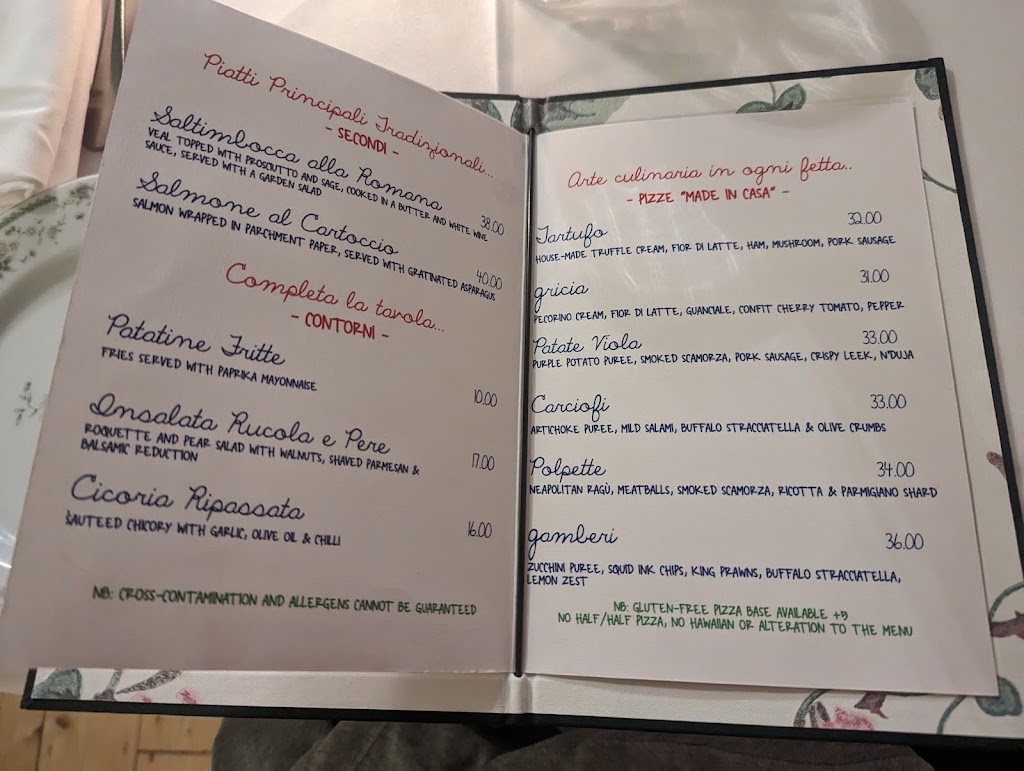 Piatti Principali Tradizionali...
- SECONDI -
Saltimbocca alla Romana
VEAL TOPPED WITH PROSCIUTTO AND SAGE, COOKED IN A BUTTER AND WHITE WINE
SAUCE, SERVED WITH A GARDEN SALAD
38.00
Salmone al Cartoccio
SALMON WRAPPED IN PARCHMENT PAPER, SERVED WITH GRATINATED ASPARAGUS
40.00
Completa la tavola...
- CONTORNI -
Patatine Fritte
FRIES SERVED WITH PAPRIKA MAYONNAISE
10.00
Insalata Rucola e Pere
ROQUETTE AND PEAR SALAD WITH WALNUTS, SHAVED PARMESAN &
BALSAMIC REDUCTION
17.00
Cicoria Ripassata
SAUTEED CHICORY WITH GARLIC, OLIVE OIL & CHILLI
16.00
NB: CROSS-CONTAMINATION AND ALLERGENS CANNOT BE GUARANTEED
Arte culinaria in ogni fetta..
- PIZZE "MADE IN CASA" -
Tartufo 32.00
HOUSE-MADE TRUFFLE CREAM, FIOR DI LATTE, HAM, MUSHROOM, PORK SAUSAGE
gricia 31.00
PECORINO CREAM, FIOR DI LATTE, GUANCIALE, CONFIT CHERRY TOMATO, PEPPER
Patate Viola 33.00
PURPLE POTATO PUREE, SMOKED SCAMORZA, PORK SAUSAGE, CRISPY LEEK, N'DUJA
Carciofi 33.00
ARTICHOKE PUREE, MILD SALAMI, BUFFALO STRACCIATELLA & OLIVE CRUMBS
Polpette 34.00
NEAPOLITAN RAGÙ, MEATBALLS, SMOKED SCAMORZA, RICOTTA & PARMIGIANO SHARD
gamberi 36.00
ZUCCHINI PUREE, SQUID INK CHIPS, KING PRAWNS, BUFFALO STRACCIATELLA,
LEMON ZEST
NB: GLUTEN-FREE PIZZA BASE AVAILABLE +5
NO HALF/HALF PIZZA, NO HAWAIIAN OR ALTERATION TO THE MENU